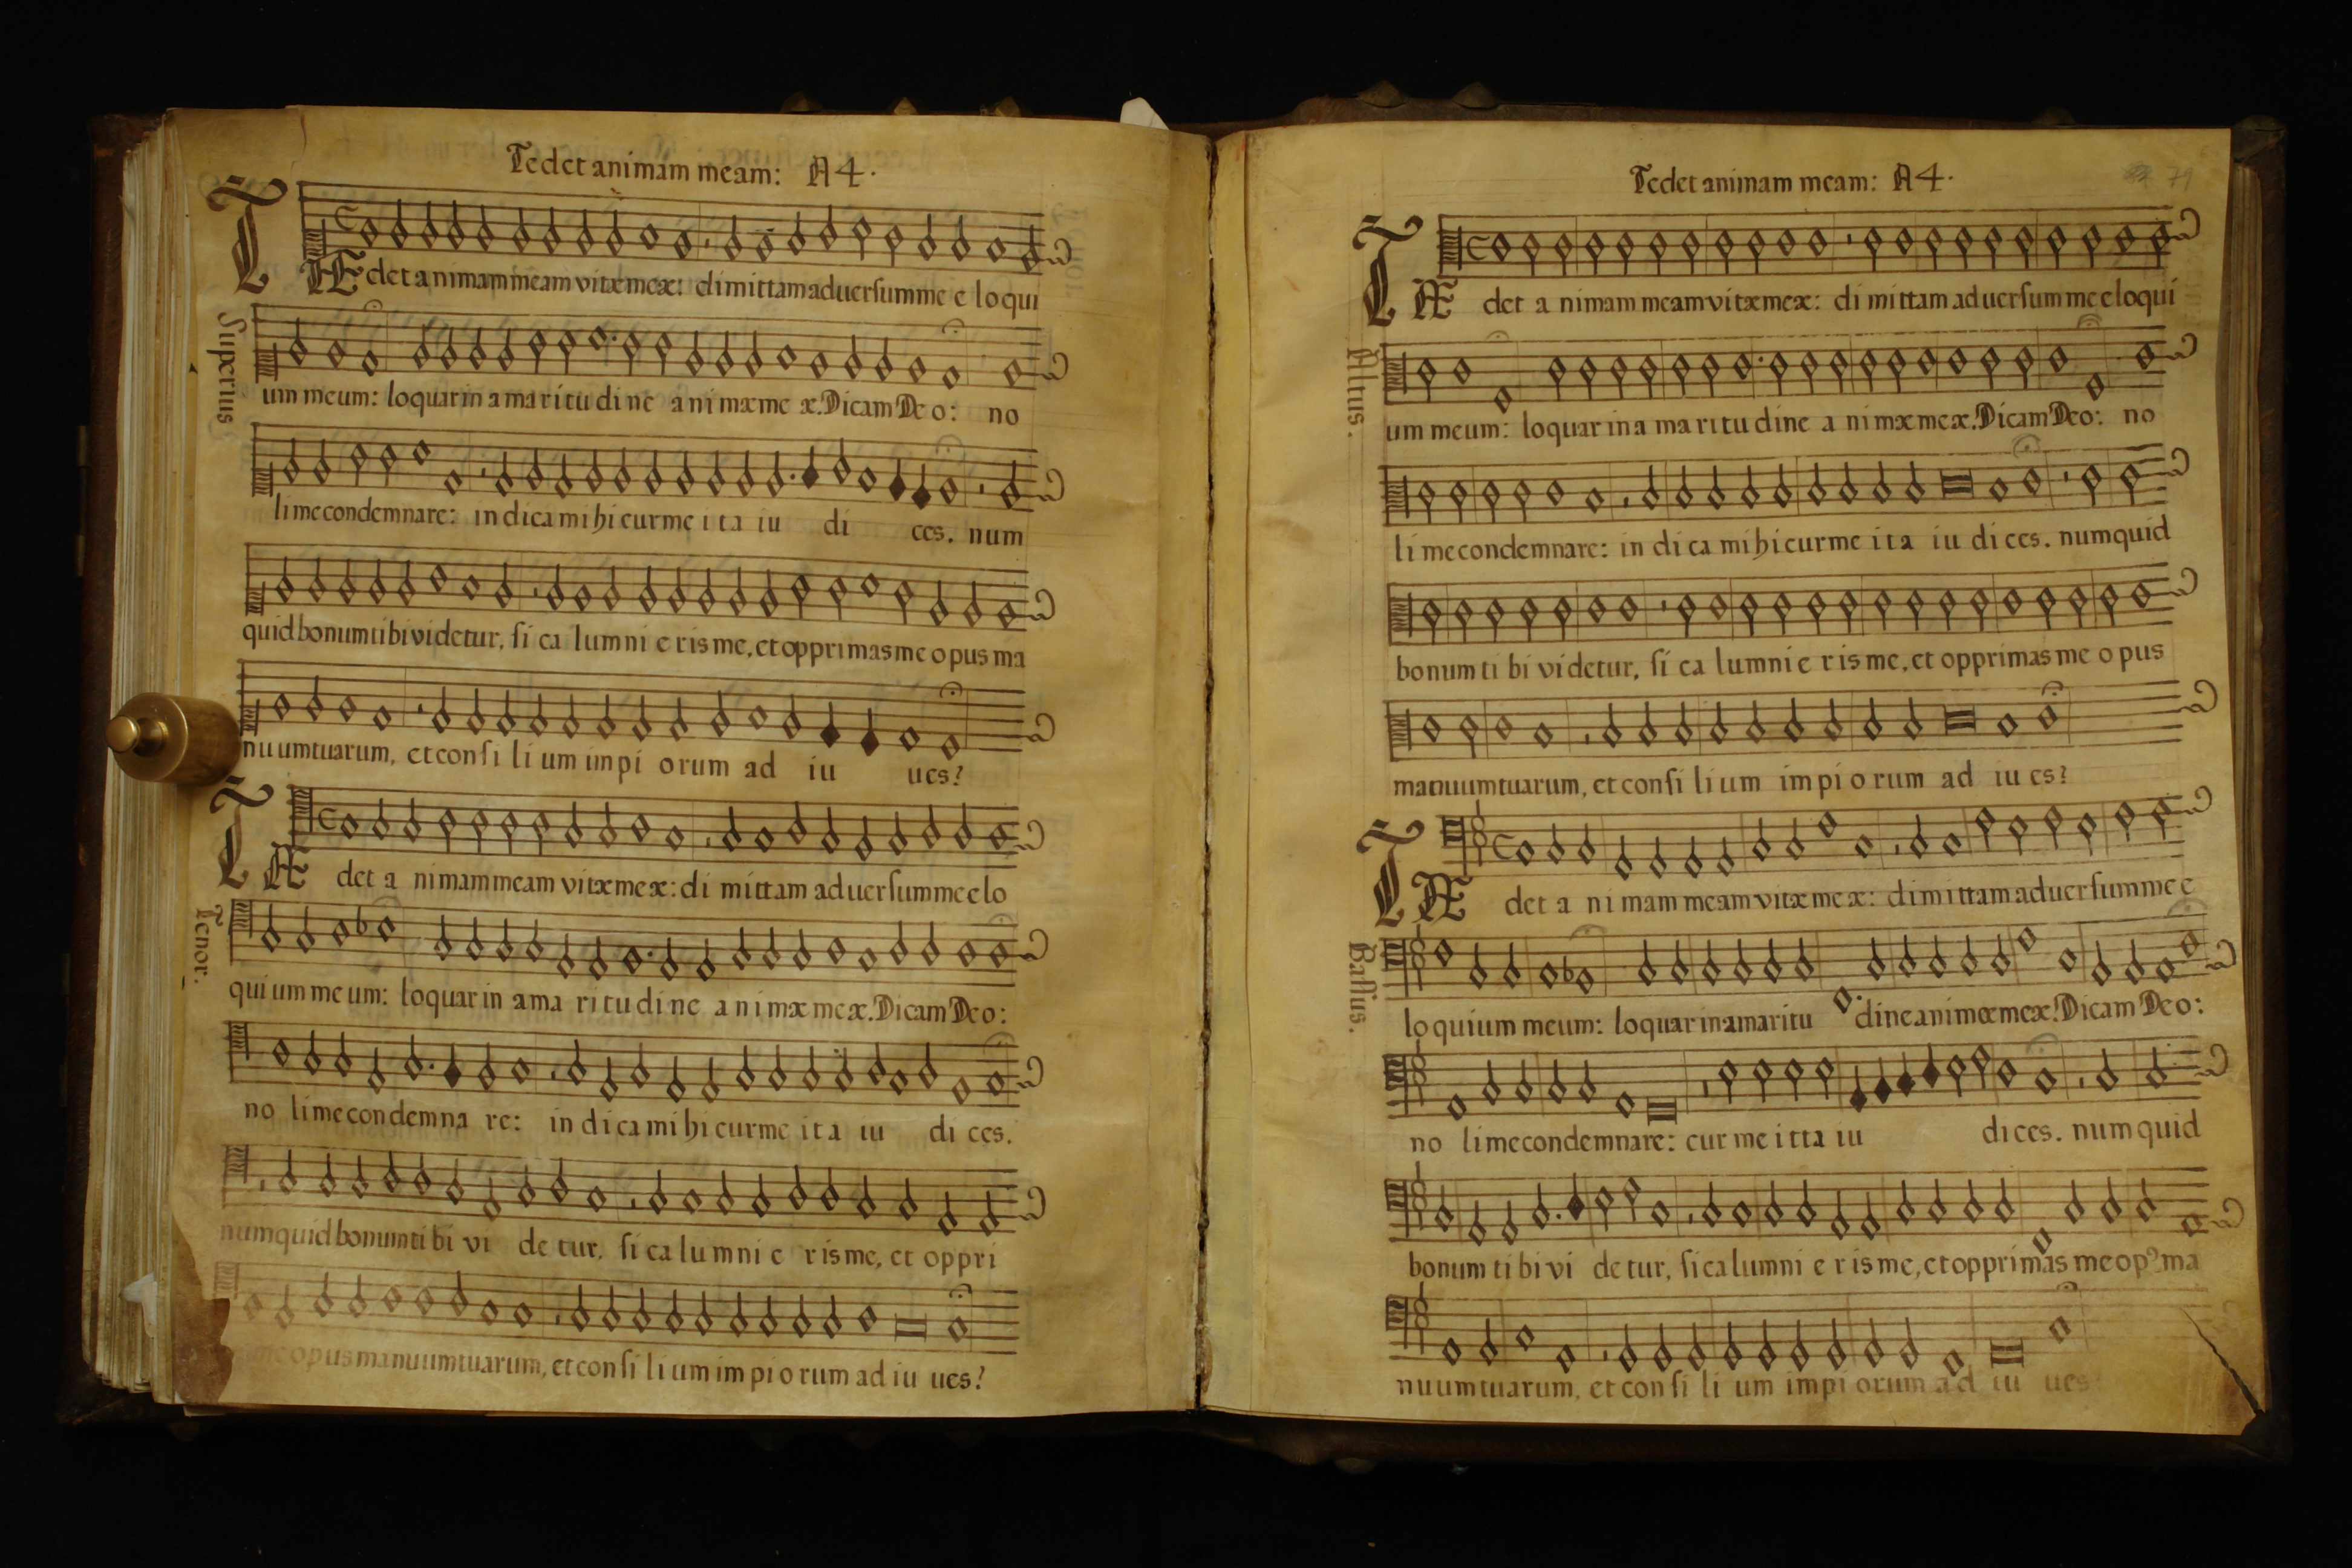 Tedet animam meam: A 4.
TÆdet animam meam vitæ meæ: dimittam aduersum me eloqui
Superius
um meum: loquar in amaritudine animæ meæ. Dicam Deo: no
li me condemnare: indica mihi cur me ita iu di ces. num
quid bonum tibi videtur, si calumnieris me, et opprimas me opus ma
nuum tuarum, et consilium impiorum ad iu ues?
TÆ det animam meam vitæ meæ: dimittam aduersum me elo
Tenor.
quium meum: loquar in amaritudine animæ meæ. Dicam Deo:
no li me condemna re: indica mihi cur me ita iu di ces.
numquid bonum tibi vi de tur, si calumnieris me, et oppri
me opus manuum tuarum, et consilium impiorum ad iu ues?
Tedet animam meam: A 4.
79
TÆ det animam meam vitæ meæ: dimittam aduersum me eloqui
Altus.
um meum: loquar in amaritudine animæ meæ. Dicam Deo: no
li me condemnare: indica mihi cur me ita iu di ces. numquid
bonum tibi videtur, si calumnieris me, et opprimas me opus
manuum tuarum, et consilium impiorum ad iu es?
TÆ det animam meam vitæ meæ: dimittam aduersum me e
Bassus.
loquium meum: loquar in amaritu dine animæ meæ. Dicam Deo:
no li me condemnare: cur me itta iu di ces. numquid
bonum tibi vi de tur, si calumnieris me, et opprimas me opꝰ ma
nuum tuarum, et consilium impiorum ad iu ues